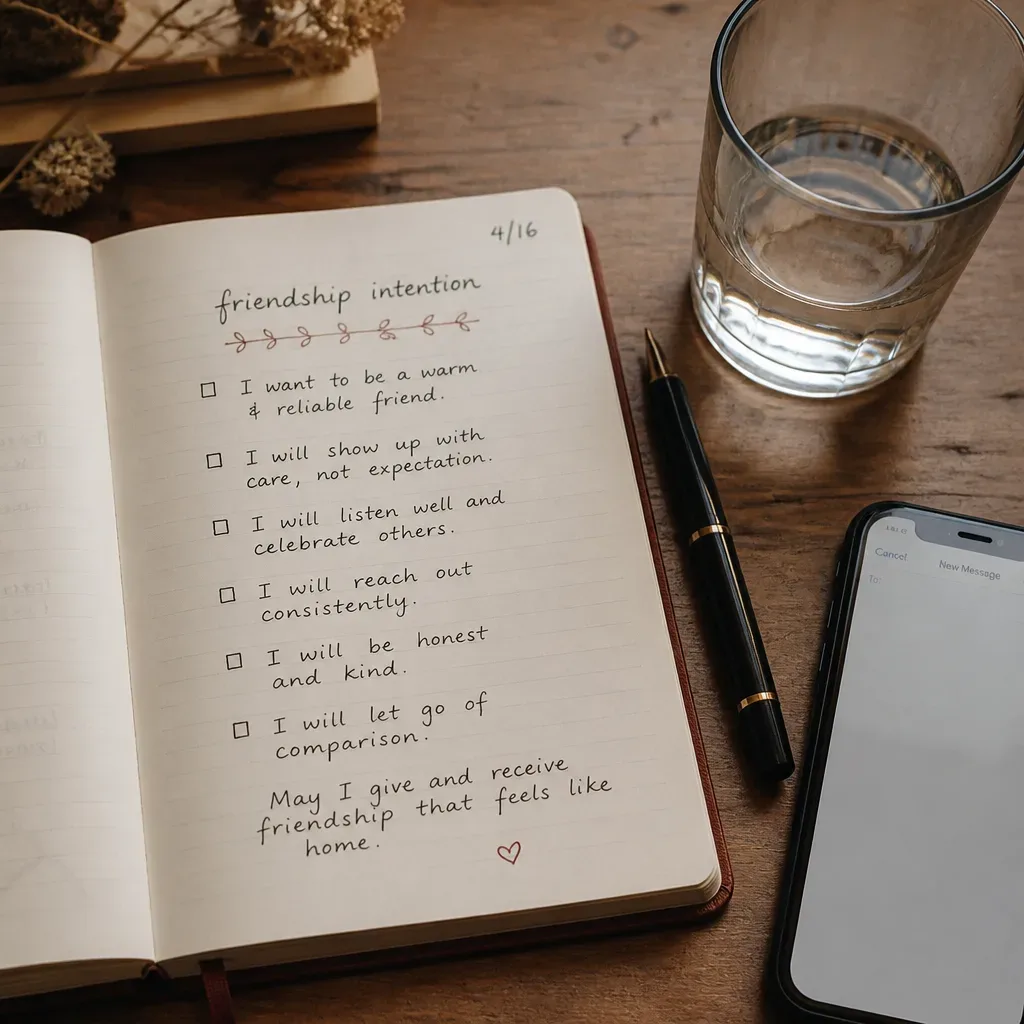 4/16
friendship intention
I want to be a warm
& reliable friend.
I will show up with
care, not expectation.
I will listen well and
celebrate others.
I will reach out
consistently.
I will be honest
and kind.
I will let go of
comparison.
May I give and receive
friendship that feels like
home.
Cancel
New Message
To: